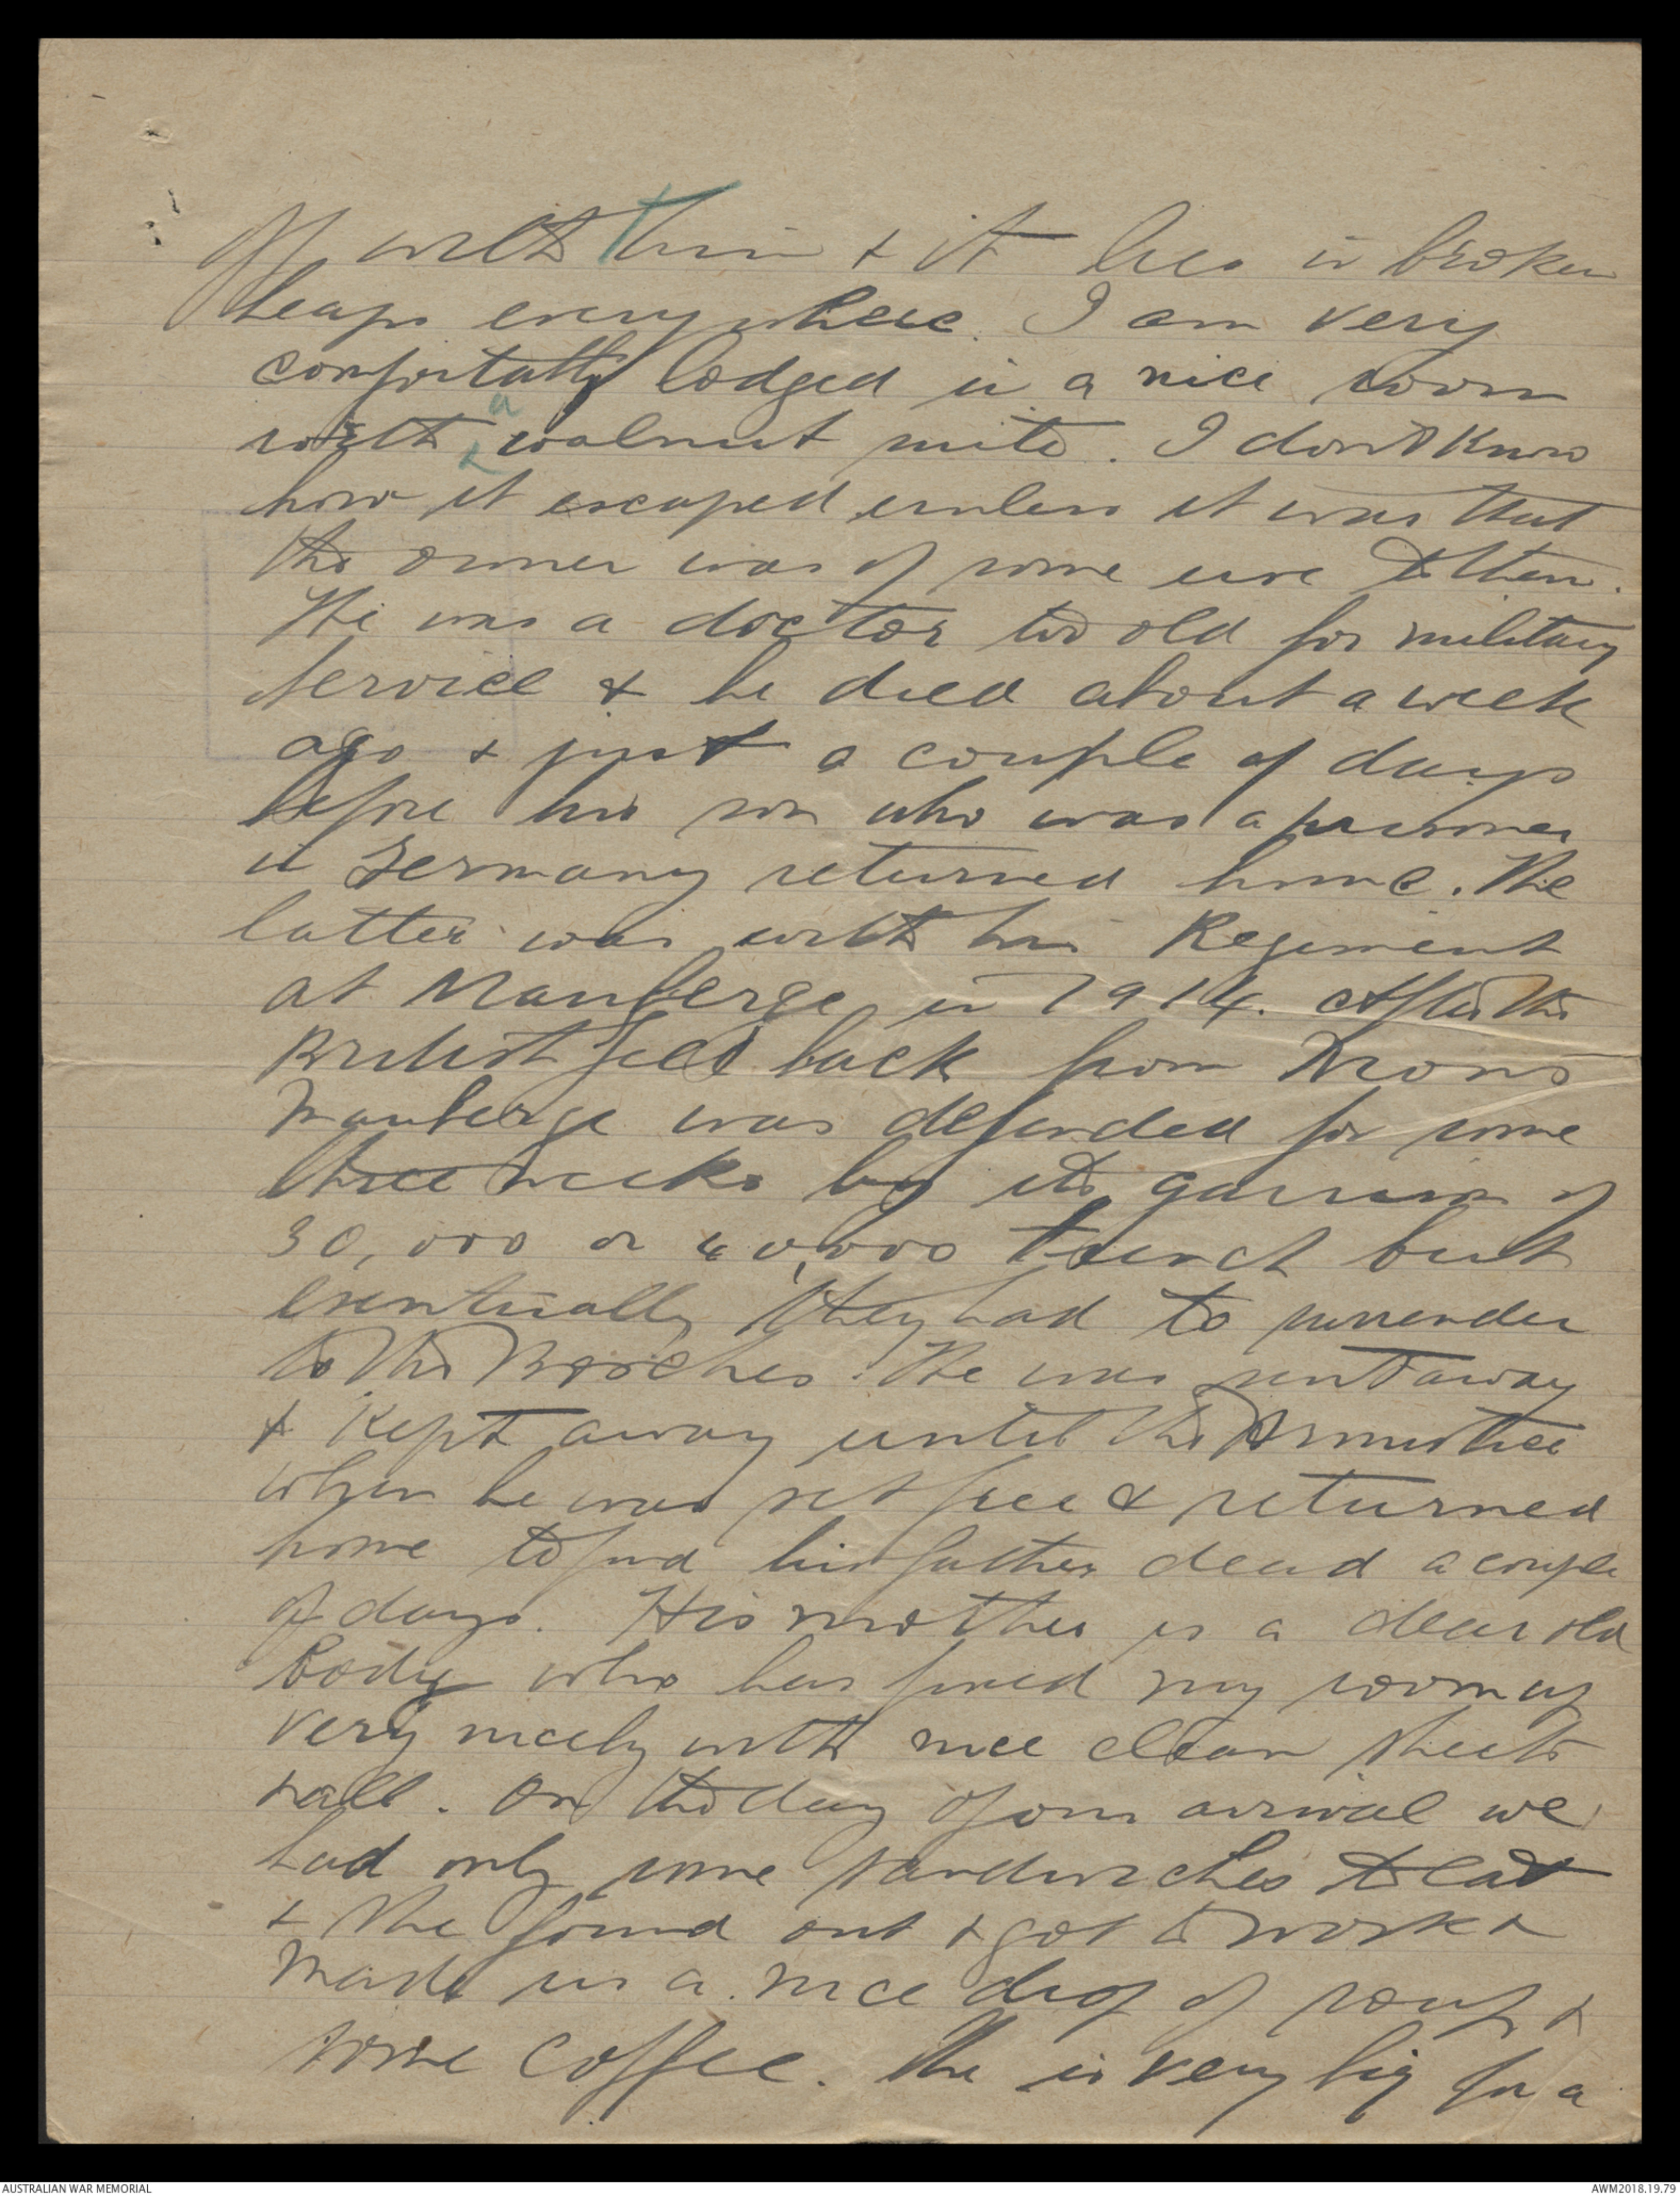 off with them & it lies in broken
heaps everywhere. I am very
comfortably lodged in a nice room
with a walnut suite. I dont know
how it escaped unless it was that
the owner was of some use to them.
He was a doctor too old for military
service & he died about a week
ago & just a couple of days
before his son who was a prisoner
in Germany returned home. The
latter was with his Regiment
at Mauberge in 1914. After the
British fell back from Mons
Mauberge was defended for some
three weeks by its garrison of
30,000 or 40,000 French but
eventually they had to surrender
to the Bosches. He was sent away
& kept away until the Armistice
when he was set free & returned
home to find his father dead a couple
of days. His mother is a dear old
body who has fixed my room up
very nicely with nice clean sheets
& all. On the day of our arrival we
had only some sandwiches to eat
& she found out & got to work &
made us a nice drop of soup &
some coffee. She is very big for a
AUSTRALIAN WAR MEMORIAL
AWM2018.19.79